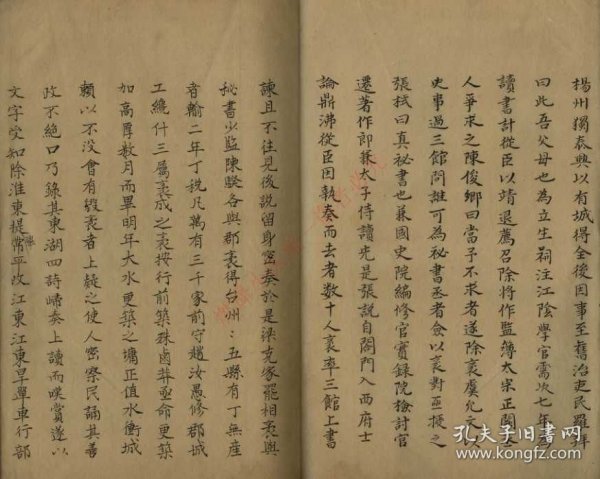 揚州獨泰興以有城得全後因事至舊治吏民羅拜
曰此吾父母也為立生祠注江陰學官需次七年為
讀書計從臣以靖退薦召除將作監簿太宗正闕士
人爭求之陳俊卿曰當予不求者遂除袤虞允文以
史事過三館問誰可為秘書丞者僉以袤對亟授之
張栻曰真祕書也兼國史院編修官實錄院檢討官
遷著作郎兼太子侍讀先是張說自閤門入西府士
論鼎沸從臣因執奏而去者數十人袤率三館上書
諫且不往見後說留身密奏於是梁克家罷相袤與
秘書少監陳騤各與郡袤得台州：五縣有丁無產
者輸二年丁稅凡萬有三千家前守趙汝愚修郡城
工纔什三屬袤成之袤按行前築殊鹵莽亟命更築
加高厚數月而畢明年大水更築之墉正值水衝城
賴以不沒會有毀袤者上疑之使人密察民誦其善
政不絕口乃錄其東湖四詩歸奏上讀而嘆賞遂以
文字受知除淮東提常平改江東江東旱單車行部
舉
孔夫子旧书网
www.kongfz.com